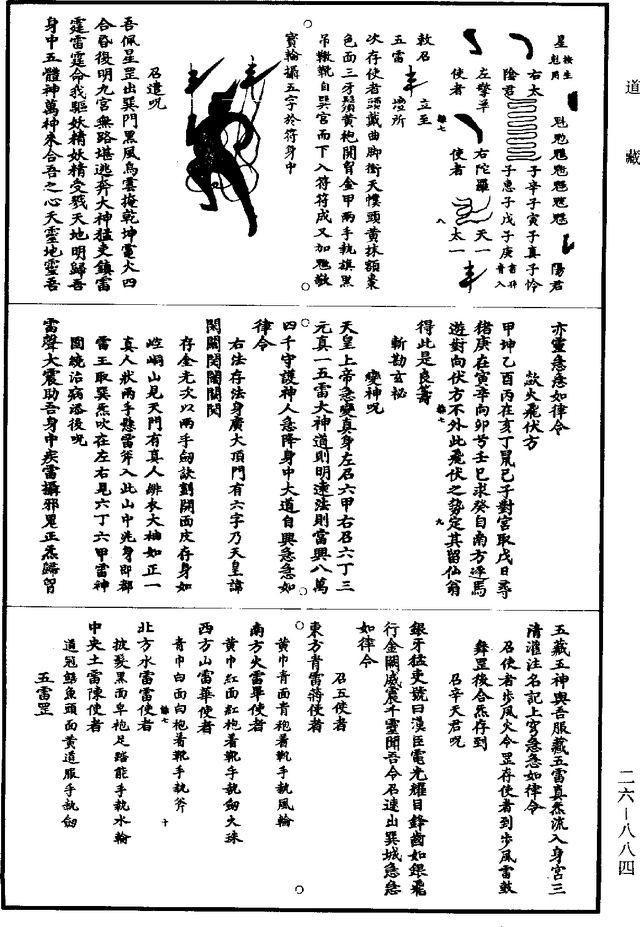 道藏
星 右太 陰君 子辛子寅子真子怜
子忠子戊子庚
陽君
左擎羊 使者
右陀羅 使者
天一 太一
敕召
五雷 立至
次存使者頭戴曲脚衝天幞頭黃抹額棗
色面三牙鬚黃袍開智金甲兩手執旗黑
吊轍靴自巽宮而下入符符成又加魓敬
寶輪攝五字於符身中
召遣呪
吾佩星罡出巽門黑風烏雲掩乾坤電火四
合昏復明九宮無路堪逃奔大神猛吏鎮雷
霆雷霆命我驅妖精妖精受戮天地明歸吾
身中五體神萬神來合吾之心天靈地靈吾
亦靈急急如律令
歘火飛伏方
甲坤乙酉丙在亥丁鼠己子對宮取戌日尋
猪庚在寅辛向卯兮壬巳求癸自南方逐馬
遊對向伏方不外此飛伏之勢定其留仙翁
得此是良籌
斬勘玄祕
變神呪
天皇上帝急變真身左召六甲右召六丁三
元真一五雷大神道則明遠法則當興八萬
四千守護神人急降身中大道自興急急如
律令
右法存法身廣大頂門有六字乃天皇諱
存金光次以兩手劍訣劃開面皮存身如
崆峒山見天門有真人緋衣大袖如正一
真人狀兩手懸雷斧入此山中洗身即都
雷王取巽炁吹在左右見六丁六甲雷神
圍繞治病添後呪
雷聲大震助吾身中疾雷攝邪鬼正炁歸留
五藏五神與吾服藏五雷真炁流入身宮三
清灌注名記上穹急急如律令
召使者步風火令罡存使者到步風雷鼓
舞罡後合炁存到
召辛天君呪
銀牙猛吏號曰漢臣電光耀目鋒齒如銀飛
行金闕威震千靈聞吾令召速出巽城急急
如律令
召五使者
東方青雷蔣使者
黃巾青面青袍著靴手執風輪
南方火雷畢使者
黃巾紅面紅袍著靴手執劍火珠
西方山雷華使者
青巾白面白袍著靴手執斧
北方水雷雷使者
披髮黑面皂袍足踏能手執水輪
中央土雷陳使者
道冠鯰魚頭面黃道服手執劍
五雷罡
二六－八八四